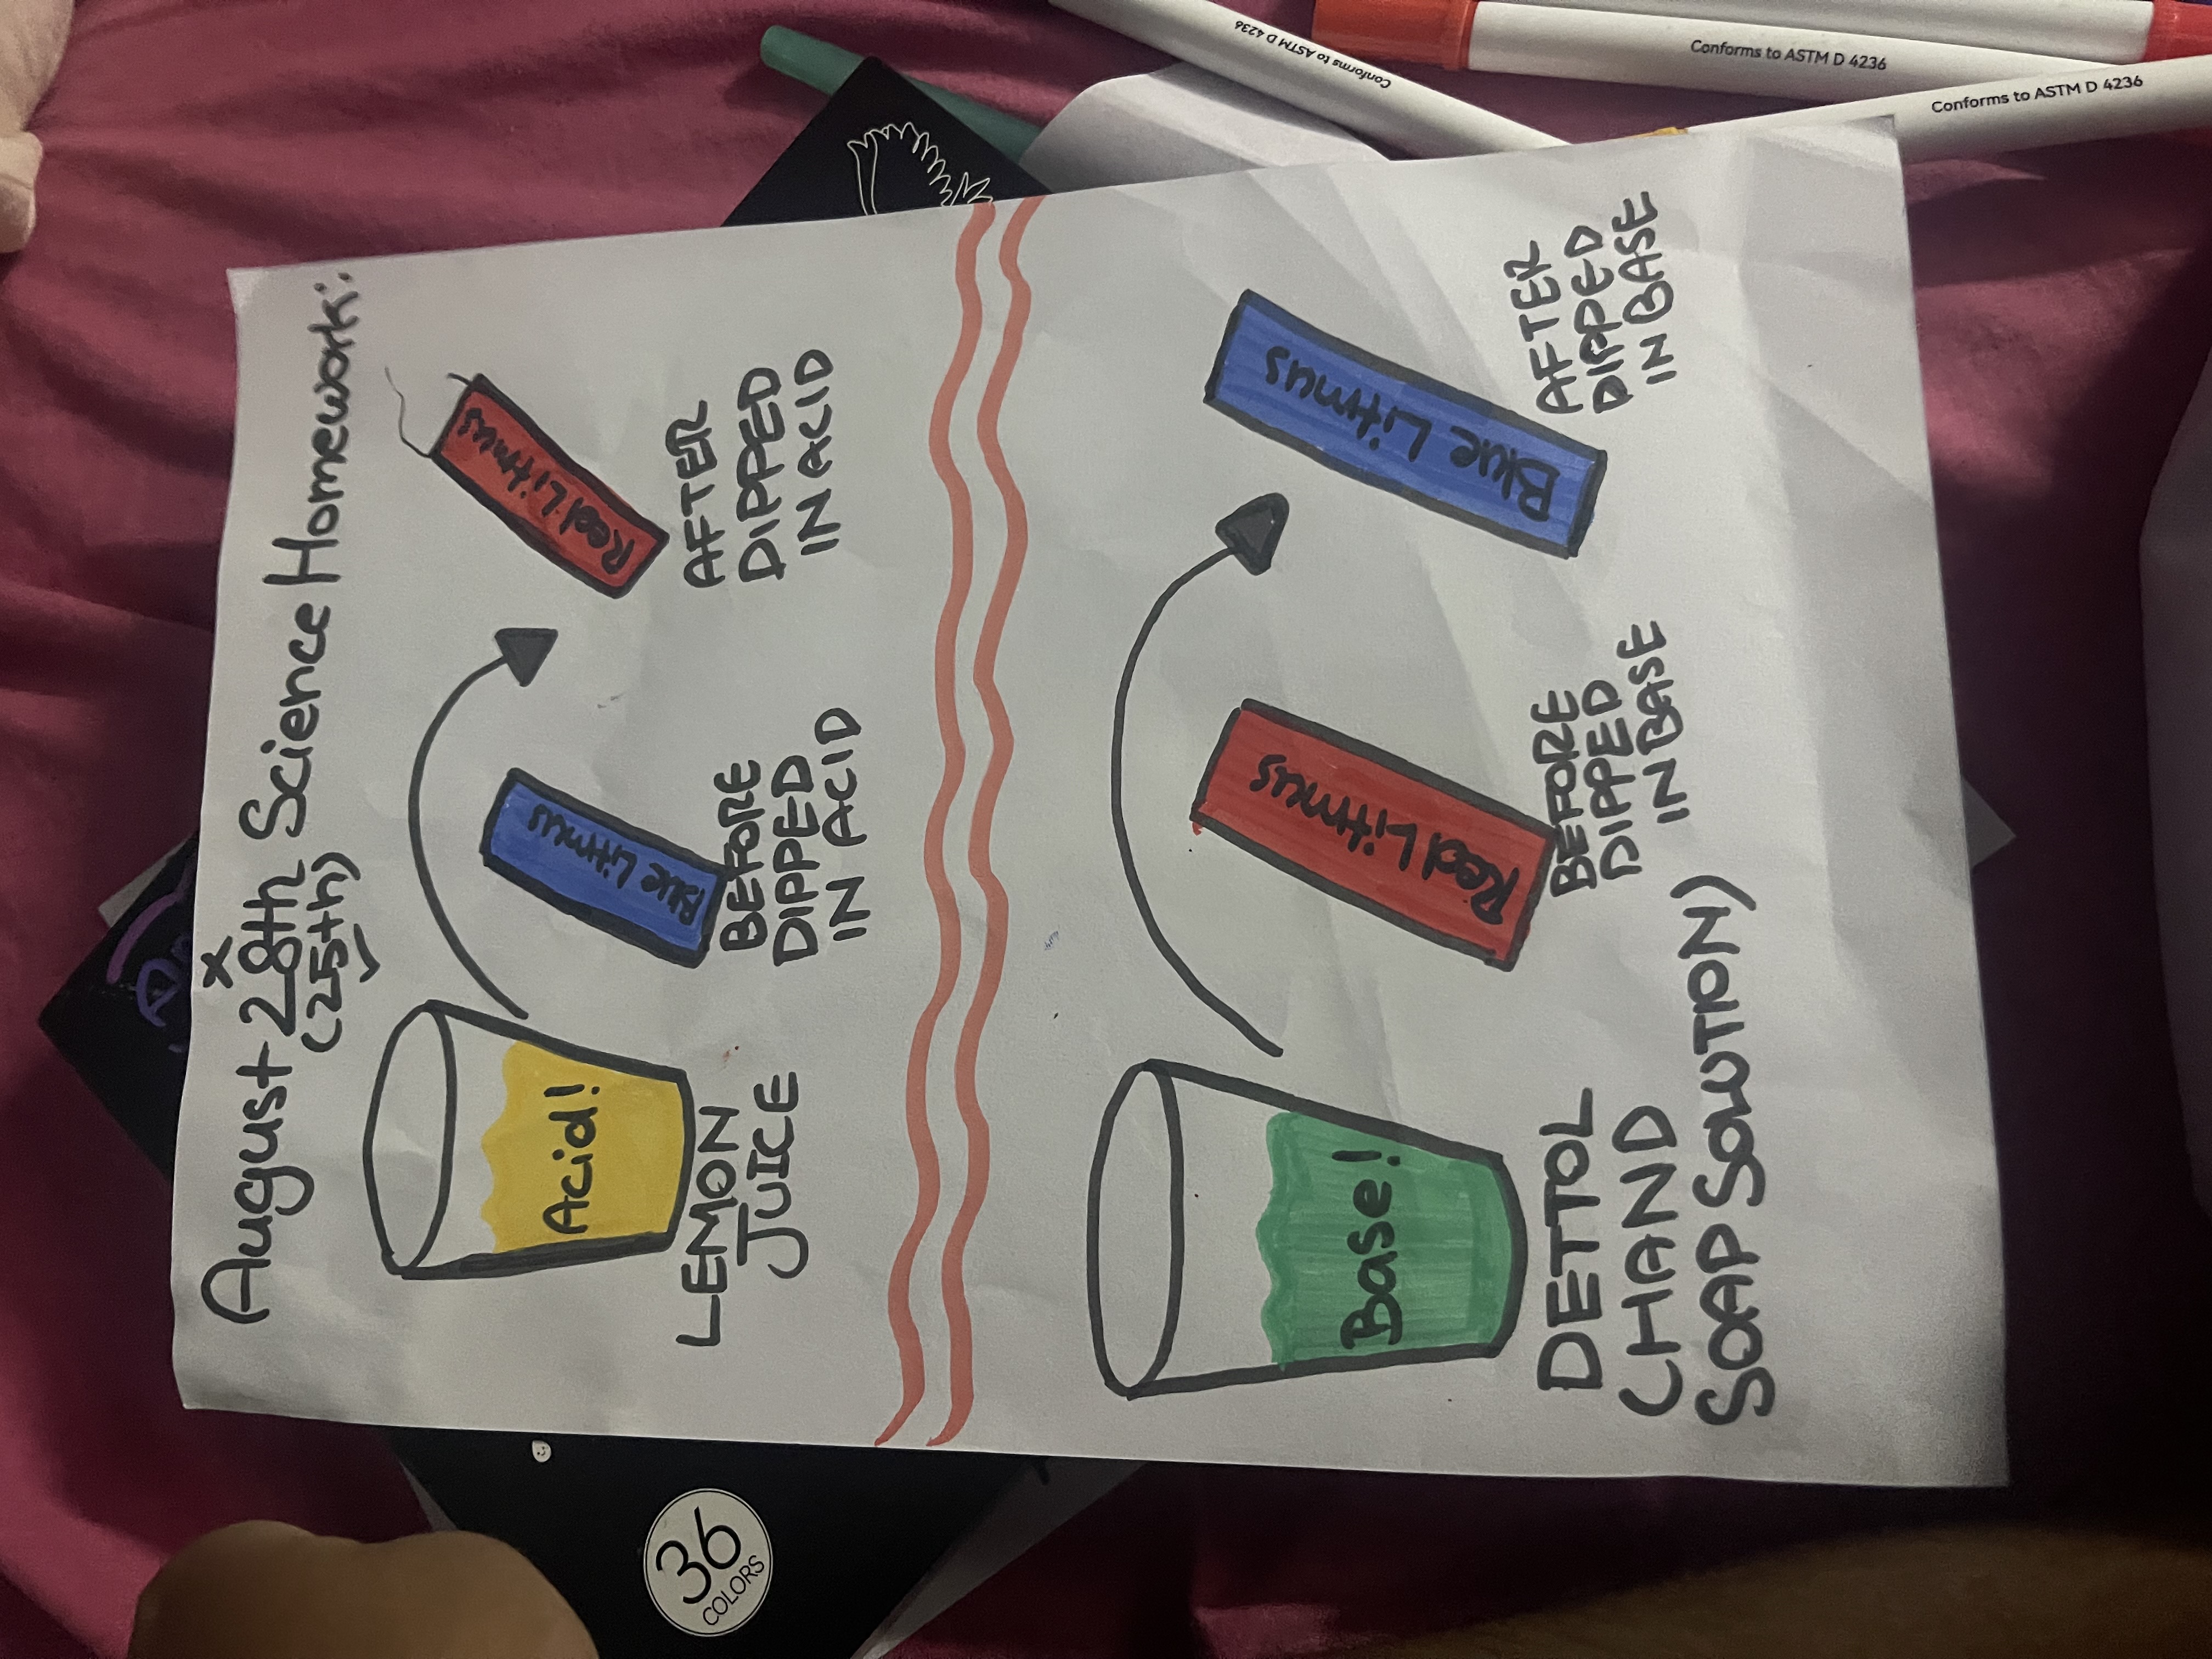 August 28th Science Homework:
x
(25th)
Acid!
LEMON
JUICE
Blue Litmus
BEFORE
DIPPED
IN ACID
Red Litmus
AFTER
DIPPED
IN ACID
Base!
DETTOL
(HAND
SOAP SOLUTION)
Red Litmus
BEFORE
DIPPED
IN BASE
Blue Litmus
AFTER
DIPPED
IN BASE
36
COLORS
Conforms to ASTM D 4236
Conforms to ASTM D 4236
Conforms to ASTM D 4236